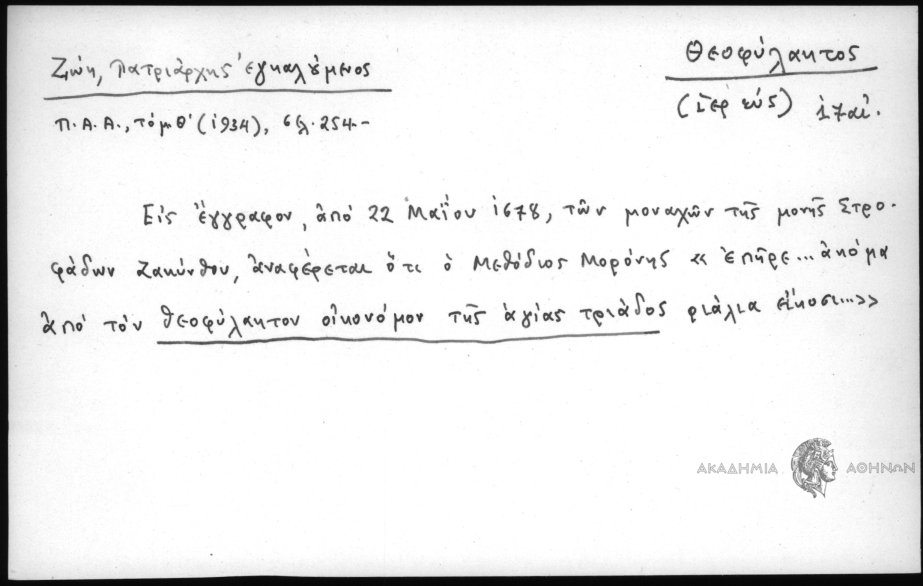 Ζώη, Πατριάρχης ἐγκαλούμενος
Θεοφύλακτος
Π.Α.Α., τόμ Θ' (1934), σελ. 254.-
(ἱερεύς) 17 αἰ.
Εἰς ἔγγραφον, ἀπό 22 Μαΐου 1678, τῶν μοναχῶν τῆς μονῆς Στρο-
φάδων Ζακύνθου, ἀναφέρεται ὅτι ὁ Μεθόδιος Μορώνης « ἐπῆρε... ἀκόμα
ἀπό τόν Θεοφύλακτον οἰκονόμον τῆς ἁγίας τριάδος ριάλια εἴκοσι...»
ΑΚΑΔΗΜΙΑ ΑΘΗΝΩΝ